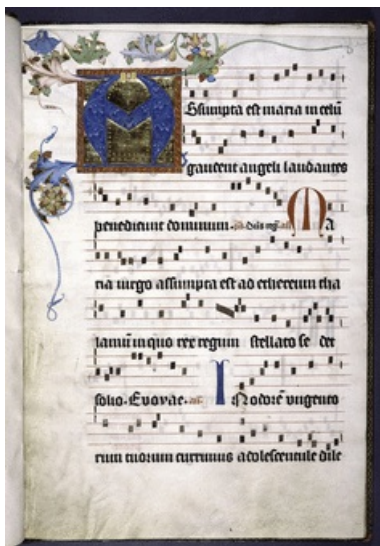 Assumpta est maria in celũ
gaudent angeli laudantes
benedicunt dominum. ps. Dñs regͣ. añ. Ma
ria virgo assumpta est ad ethereum tha
lamũ in quo rex regum stellato se det
solio. Evovae. añ. In odorẽ ungento
rum tuorum currimus adolescentule dile